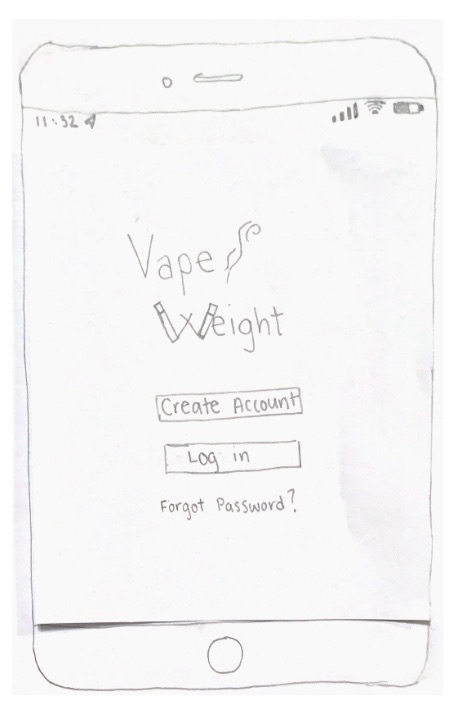 11:32
Vape
Weight
Create Account
Log in
Forgot Password?